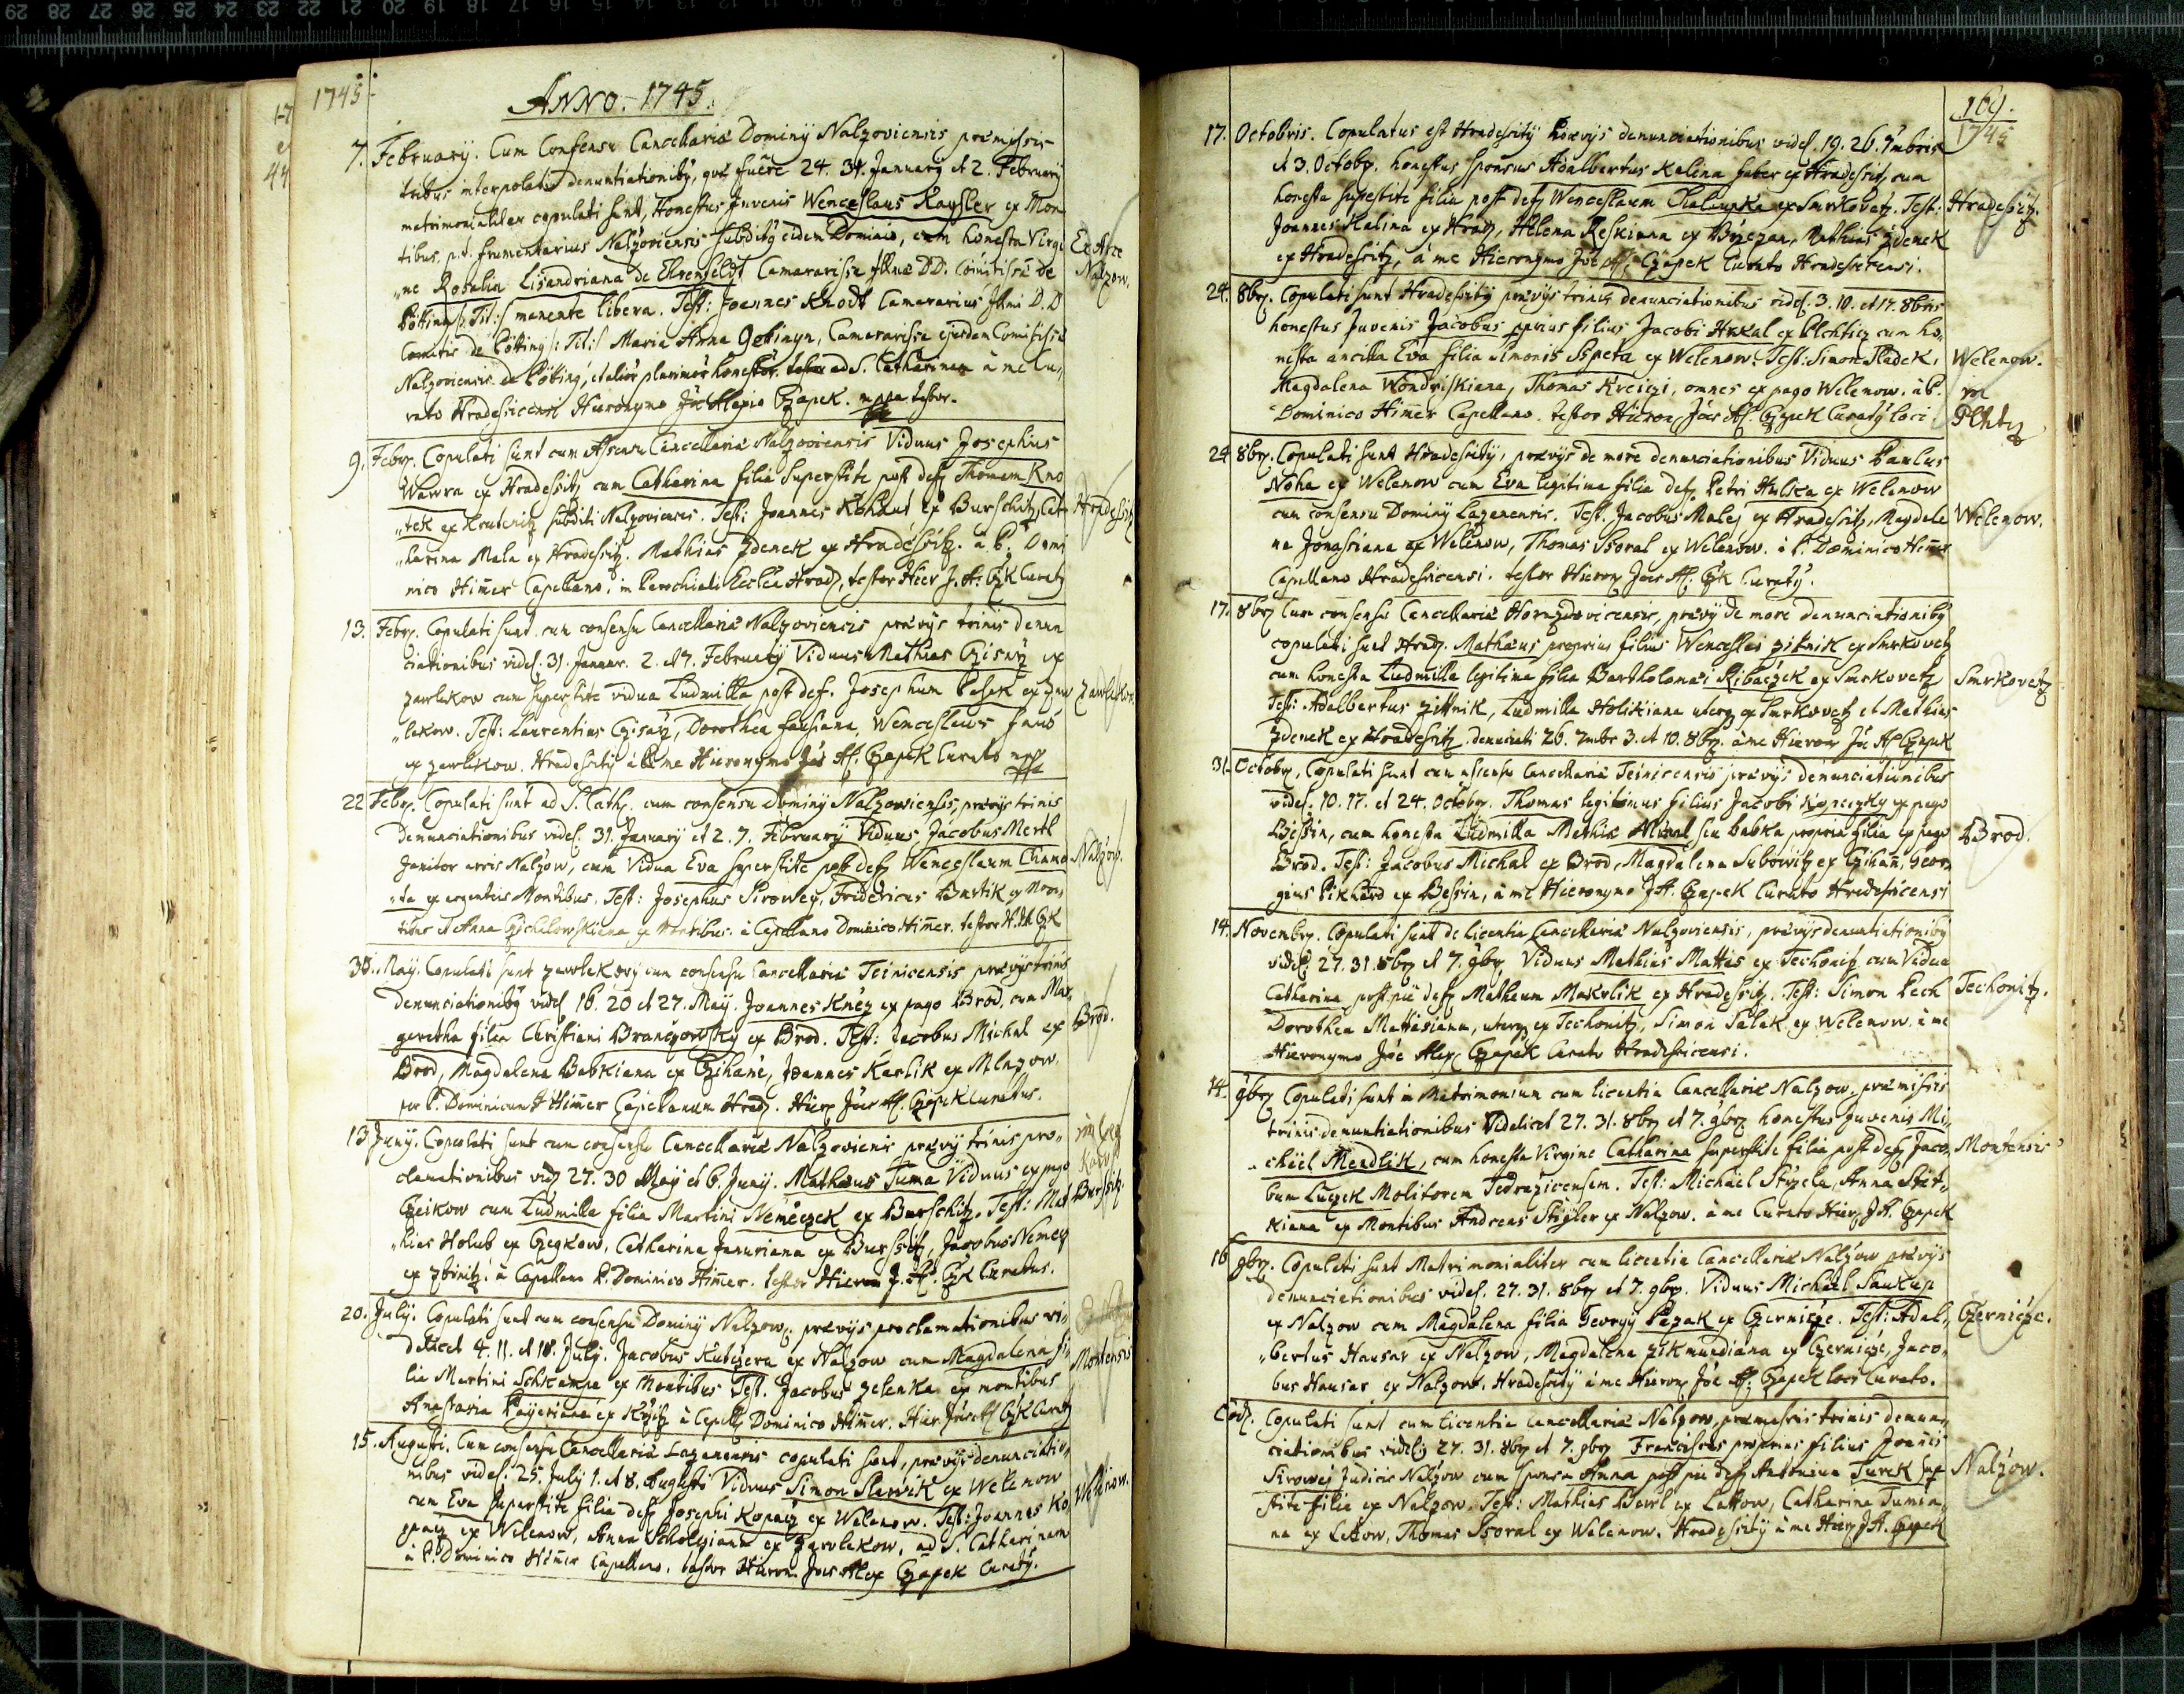 1745
ANNO. 1745.
7. February. Cum Consensu Cancellariæ Dominÿ Nalzoviensis præmissis
tribus interpolatis denuntiationibg, quæ fuêre 24. 31. January et 2. February
matrimonialiter copulati sunt, Honestus Juvenis Wenceslaus Kaysler ex Mon
tibus, p.t. frumentarius Nalzoviensis subditg eidem Dominio, cum honesta Virgi
„ne Rosalia Lisandriana de Ehrenfeldt Camararissa Illmæ DD. Comitissæ de
Pötting /: Tit: / manente libera. Test: Joannes Knodt Camararius Illmi D. D
Comitis de Pötting /: Tit: / Maria Anna Gobinyn, Camararissa ejusdem Comitissæ
Nalzoviensis de Pötting, et alior plurimor honestor. ad S. Catharinam à me Cu„
rato Hradesicensi Hieronymo Joē Alexio Czapek. mppa testor.
Ex Arce
Nalzow.
9. Febrz. Copulati sunt cum Assensu Cancellariæ Nalzoviensis Viduus Josephus
Wawra ex Hradessitz cum Catharina filia superstite post defz Thomam Kno
„tek ex Kruteniz subditi Nalzovienses. Test: Joannes Kohaut ex Burschitz, Cat„
„harina Mala ex Hradessitz. Mathias Zdenek ex Hradéssitz. à P. Domi
nico Himer Capellano, in Parochiali Ecclia Hradz, testor Hier J. A: Czk Curatz
Hradessitz
13. Febrz. Copulati sunt cum consensu Cancellariæ Nalzoviensis prævÿs trinis denun
ciationibus videl. 31. Januar. 2. et 7. February Viduus Mathias Czisarz ex
Zawlekow cum superstite vidua Ludmilla post def. Josephum Pesek ex Zaw
„lekow. Test: Laurentius Czisarz, Dorothea, Wenceslaus
ex Zawlekow. Hradessitÿ à me Hieronymo Joē Al. Czapek Curato mpp
Zawlekow.
22 Febrz. Copulati sunt ad S. Cath. cum consensu Dominÿ Nalzowiensis, prævÿs trinis
Denunciationibus videl. 31. January et 2. 7. February Viduus Jacobus Mertl
Janitor arcis Nalzow, cum Vidua Eva superstite post defz Wenceslaum Chamo
„ta ex argenteis Montibus. Test: Josephus Sirowey, Fridericus Bartik ex Mon„
tibus et Anna Czichelowskiana ex Montibus. à Capellano Dominico Himer. testor H. Czk
Nalzow.
30. May. Copulati sunt Zawlekovÿ cum consensu Cancellariæ Teinicensis prævÿs trinis
denunciationibg videl 16. 20 et 27. May. Joannes Knez ex pago Brod. cum Mar„
garetha filia Christiani Branczowsky ex Brod. Test: Jacobus Michal ex
Brod, Magdalena Babkiana ex Czihane, Joannes Karlik ex Mlazow.
per P. Dominicum Himer Capellanum Hradz. Hierz Joēs Al. Czapek Curatus.
Brod.
13. Junÿ. Copulati sunt cum consensu Cancellariæ Nalzoviensis prævÿ trinis pro„
clamationibus vidz 27. 30 May et 6. Junÿ. Mathæus Tuma Viduus ex pago
Czeikow cum Ludmilla filia Martini Nemeczek ex Burschitz. Test: Mat
„hias Holub ex Czegkow, Catharina Januriana ex Burssitz, Jacobus Nemecz
ex Zbinitz. à Capellano P. Dominico Himer. testor Hieron J. A. Czk Curatus.
in Czeg
kow
Burssitz
20. Julÿ. Copulati sunt cum consensu Dominÿ Nalzow, prævÿs proclamationibus vi„
delicet 4. 11. et 18. Julÿ. Jacobus Kutczera ex Nalzow cum Magdalena fi„
lia Martini Schkampa ex Montibus Test. Jacobus Zelenka ex montibus
Anastasia Payeriana ex à Capell. Dominico Himer. Hier. Joēs A. Czk Curatz
Montensis
15. Augusti. Cum consensu Cancellariæ Lazanensis copulati sunt, prævÿs denunciatio„
nibus videl. 25. Julÿ 1. et 8. Augusti Viduus Simon Slawik ex Welenow
cum Eva superstite filia defz Josephi Kopacz ex Welenow. Test: Joannes Ko„
pacz ex Welenow, Anna ex Zawlekow, ad S. Catharinam
à P. Dominico Himer Capellano. testor Hieron. Joēs Alex Czapek Curatg.
Welenow.
169.
1745
17. Octobris. Copulatus est Hradessitÿ prævÿs denunciationibus videl. 19. 26. 7mbris
et 3. Octobr. honestus sponsus Adalbertus Kalina faber ex Hradessitz cum
honesta superstite filia post defz Wenceslaum Chalaupka ex Smrkovetz. Test:
Joannes Kalina ex Hradz, Helena Reskiana ex Brzezan, Mathias Zdenek
ex Hradessitz, à me Hieronymo Joē Al. Czapek Curato Hradesicensi.
Hradessitz.
24. 8brz. Copulati sunt Hradessitÿ prævÿs trinis denunciationibus videl. 3. 10. et 17. 8bris
honestus Juvenis Jacobus pprius filius Jacobi Hrxal ex Plchticz cum ho„
nesta ancilla Eva filia Simonis Sspeta ex Welenow. Test: Simon Sladek,
Magdalena Wondriskiana, Thomas Kreiczi, omnes ex pago Welenow. à P.
Dominico Himer Capellano. testor Hieron Joēs Al. Czapek Curatg loci
Welenow.
in
Plhtiz
24 8brz. Copulati sunt Hradessitÿ, prævÿs de more denunciationibus Viduus Paulus
Noha ex Welenow cum Eva legitima filia defz. Petri Hulka ex Welenow
cum consensu Dominÿ Lazanensis. Test. Jacobus Malej ex Hradessitz, Magdale
na Jonassiana ex Welenow, Thomas Ssoral ex Welenow. à P. Dominico Himer
Capellano Hradesicensi. testor Hieronz Joēs Al: Czk Curatg.
Welenow.
17. 8brz Cum consensu Cancellariæ Horazdovicensis, prævÿ de more denunciationibg
copulati sunt Hradz. Mathæus proprius filius Wenceslai Zitnik ex Smrkovetz
cum honesta Ludmilla legitima filia Bartholomæi Ribaczek ex Smrkovetz
Test: Adalbertus Zittnik, Ludmilla Holikiana uterq ex Smrkovetz et Mathias
Zdenek ex Hradessitz. denunciati 26. 7mbr 3. et 10. 8brz. à me Hieron Joē Al Czapek
Smrkovetz
31. Octobr. Copulati sunt cum assensu Cancellariæ Teinicensis prævÿs denunciationibus
videl. 10. 17. et 24. Octobr. Thomas legitimus filius Jacobi Kopeczky ex pago
Bessin, cum honesta Ludmilla Mathiæ Michal seu babka propria filia ex pago
Brod. Test: Jacobus Michal ex Brod, Magdalena Subowitz ex Czihan, Geor„
gius Pikhard ex Bessin, à me Hieronymo J A. Czapek Curato Hradesicensi
Brod.
14. Novembrz. Copulati sunt de licentia Cancellariæ Nalzoviensis, prævÿs denuntiationibg
videl. 27. 31. 8brz et 7. 9brz Viduus Mathias Mattis ex Techonitz cum Vidua
Catharina post piè defz Matheum Makolik ex Hradessitz. Test: Simon Pech
Dorothea Mattasiana, uterq ex Techonitz, Simon Salak ex Welenow. à me
Hieronymo Joē Alex Czapek Curato Hradesicensi.
Techonitz.
14. 9brz Copulati sunt in Matrimonium cum licentia Cancellariæ Nalzow, præmissis
trinis denuntiationibus Videlicet 27. 31. 8brz et 7. 9brz honestus Juvenis Mi„
„chäel Mendlik, cum honesta Virgine Catharina superstite filia post defz Jaco„
bum Luczek Molitorem Tedrazicensem. Test: Michäel Strzela, Anna
kiana ex Montibus Andreas Stigler ex Nalzow. à me Curato Hierz J A. Czapek
Montensis
16 9brz. Copulati sunt Matrimonialiter cum licentia Cancellariæ Nalzow prævÿs
denunciationibus videl. 27. 31. 8brz et 7. 9brz. Viduus Michäel Saukup
ex Nalzow cum Magdalena filia Georgÿ Pazak ex Czernicze. Test: Adal„
„bertus Hausar ex Nalzow, Magdalena Zikmundiana ex Czernicze, Jaco„
bus Hausar ex Nalzow. Hradessitÿ à me Hieron Joē Al. Czapek loci Curato.
Czernicze.
Eodz. Copulati sunt cum licentia Cancellariæ Nalzow, præmissis trinis denun„
ciationibus videl. 27. 31. 8brz et 7. 9brz Franciscus proprius filius Joannis
Sirowej Judicis Nalzow cum sponsa Anna post piè defz Antonium Turek sup
stite filia ex Nalzow. Test: Mathias Bawl ex Lettow, Catharina Tumia„
na ex Lettow, Thomas Ssoral ex Welenow. Hradessitÿ à me Hier J A. Czapek
Nalzow.